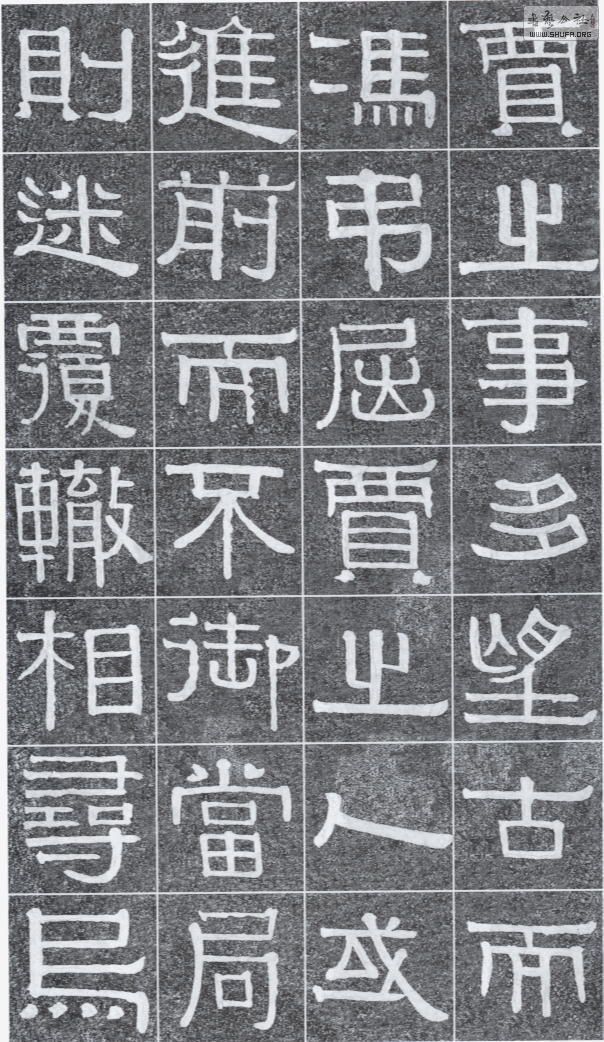 賈之事多望古而
馮弔屈賈之人或
進前而不御當局
則迷覆轍相尋烏
WWW.SHUFA.ORG